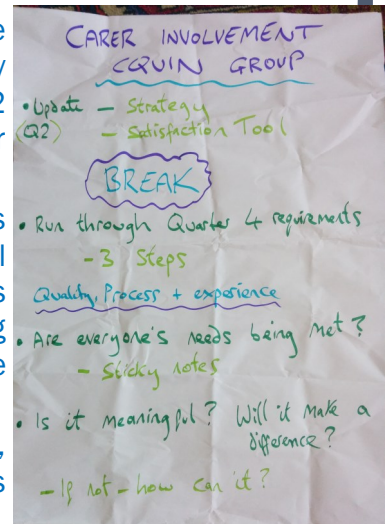 CARER INVOLVEMENT
CQUIN GROUP
• Update – Strategy
(Q2) – Satisfaction Tool
BREAK
• Run through Quarter 4 requirements
- 3 Steps
Quality, Process + experience
• Are everyone's needs being met?
- Sticky notes
• Is it meaningful? Will it make a
difference?
- If not - how can it?